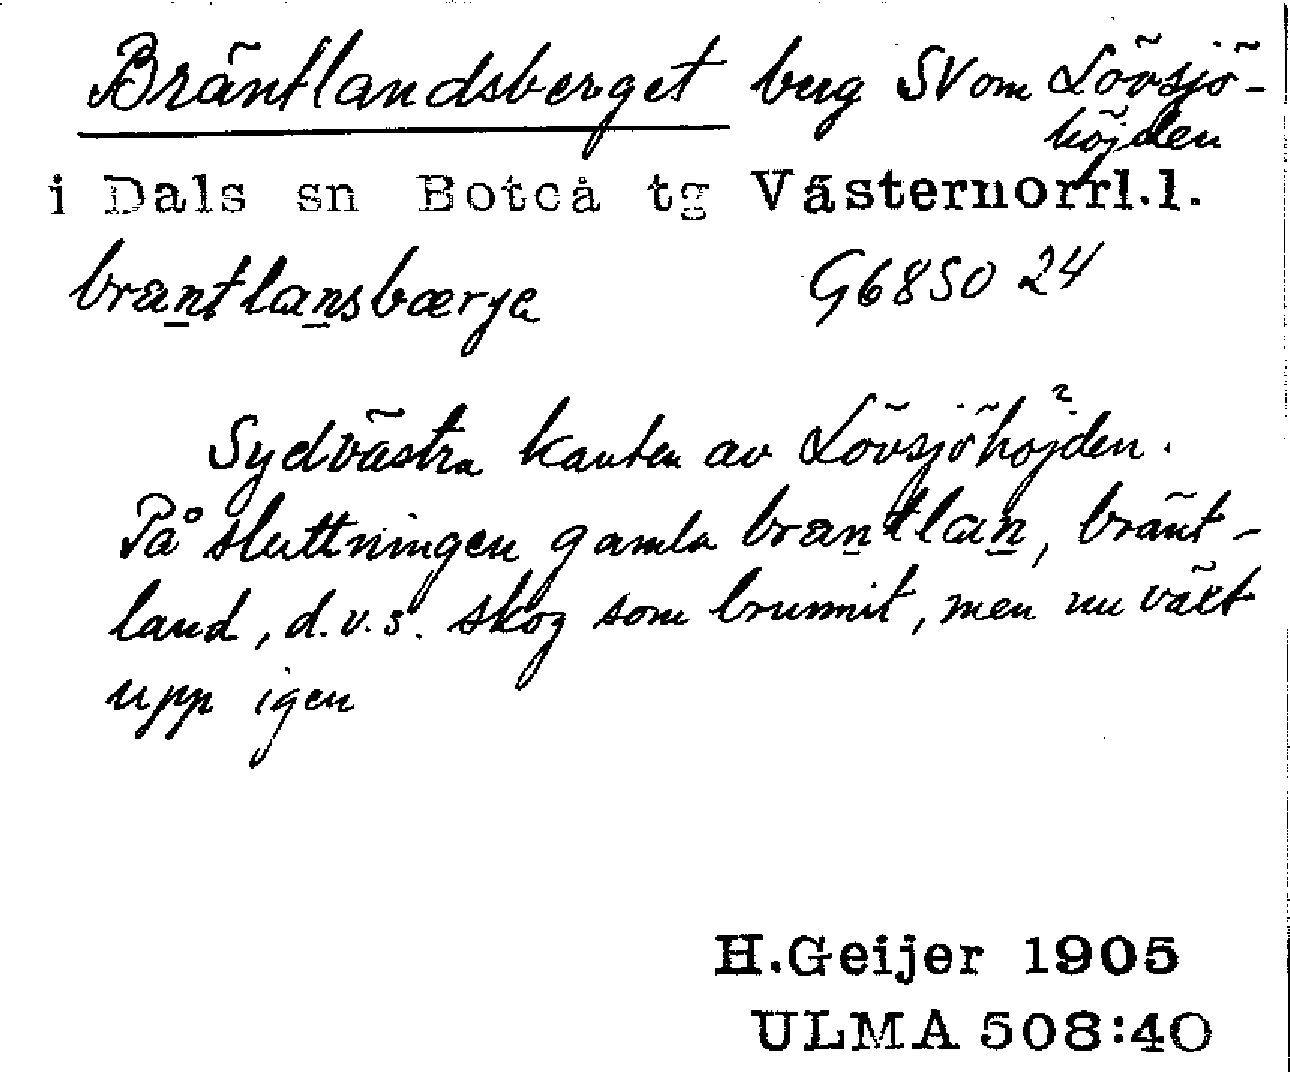 Bräntlandsberget berg SV om Lövsjö-
höjden
i Dals sn Boteå tg Västernorrl.l.
bræntlansbærɟa
G6850 24
Sydvästra kanten av Lövsjöhöjden.
På sluttningen gamla bræntlan, bränt-
land, d.v.s. skog som brunnit, men nu växt
upp igen
H.Geijer 1905
ULMA 508:40